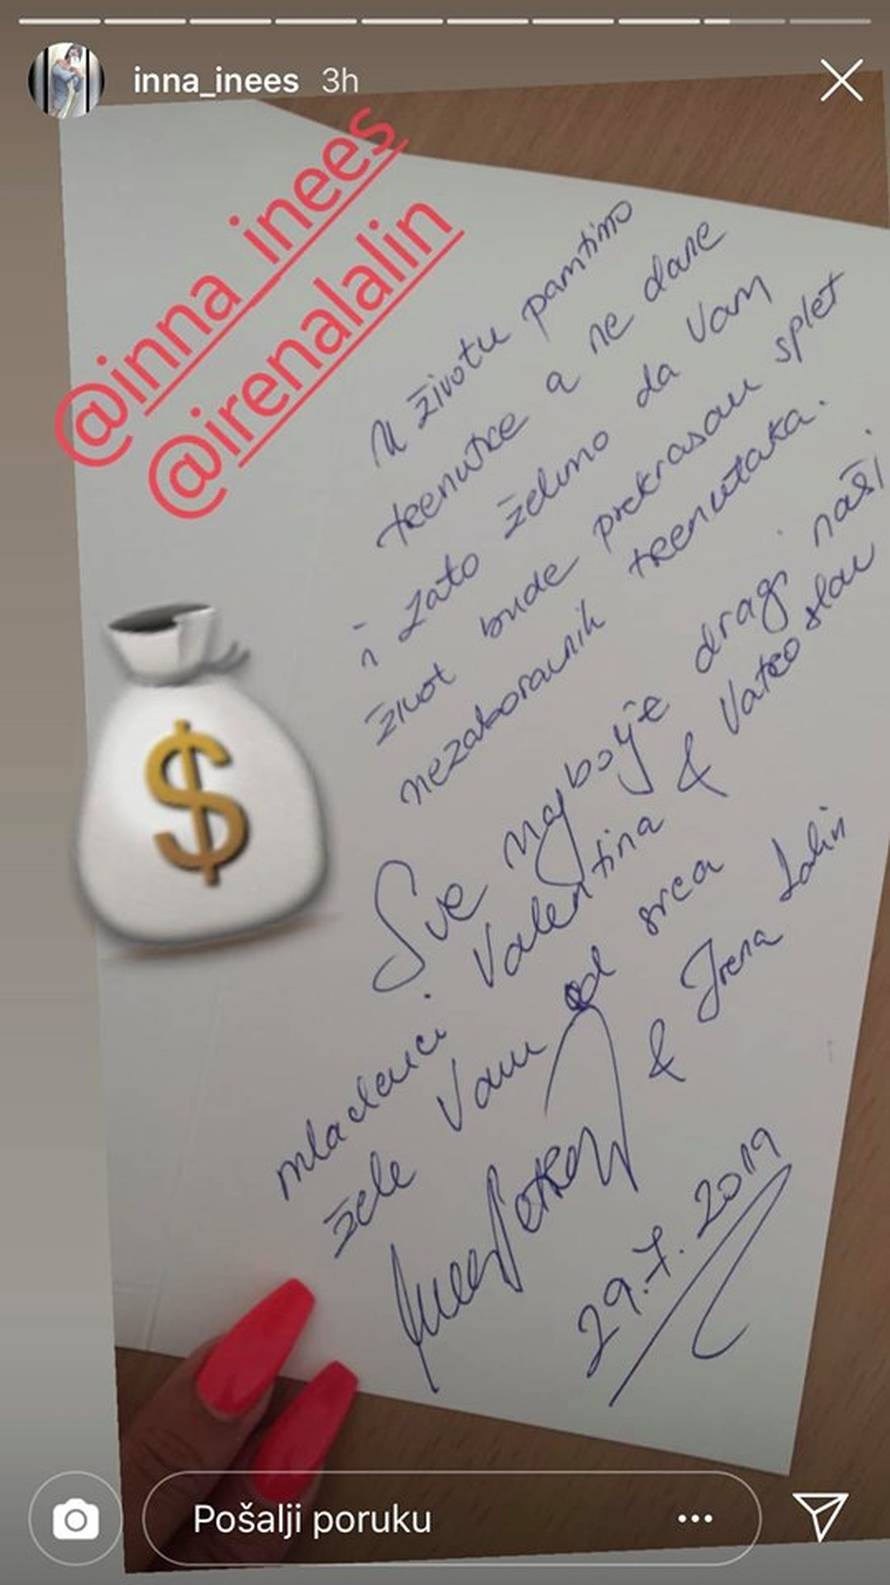 inna_inees 3h
@inna_inees
@irenalalin
U životu pamtimo
trenutke a ne dane
i zato želimo da Vam
život bude prekrasan splet
nezaboravnih trenutaka.
Sve najbolje dragi naši
mladenci Valentina & Vatroslav
žele Vam od srca
& Irena Lalin
29.7.2019
$
Pošalji poruku